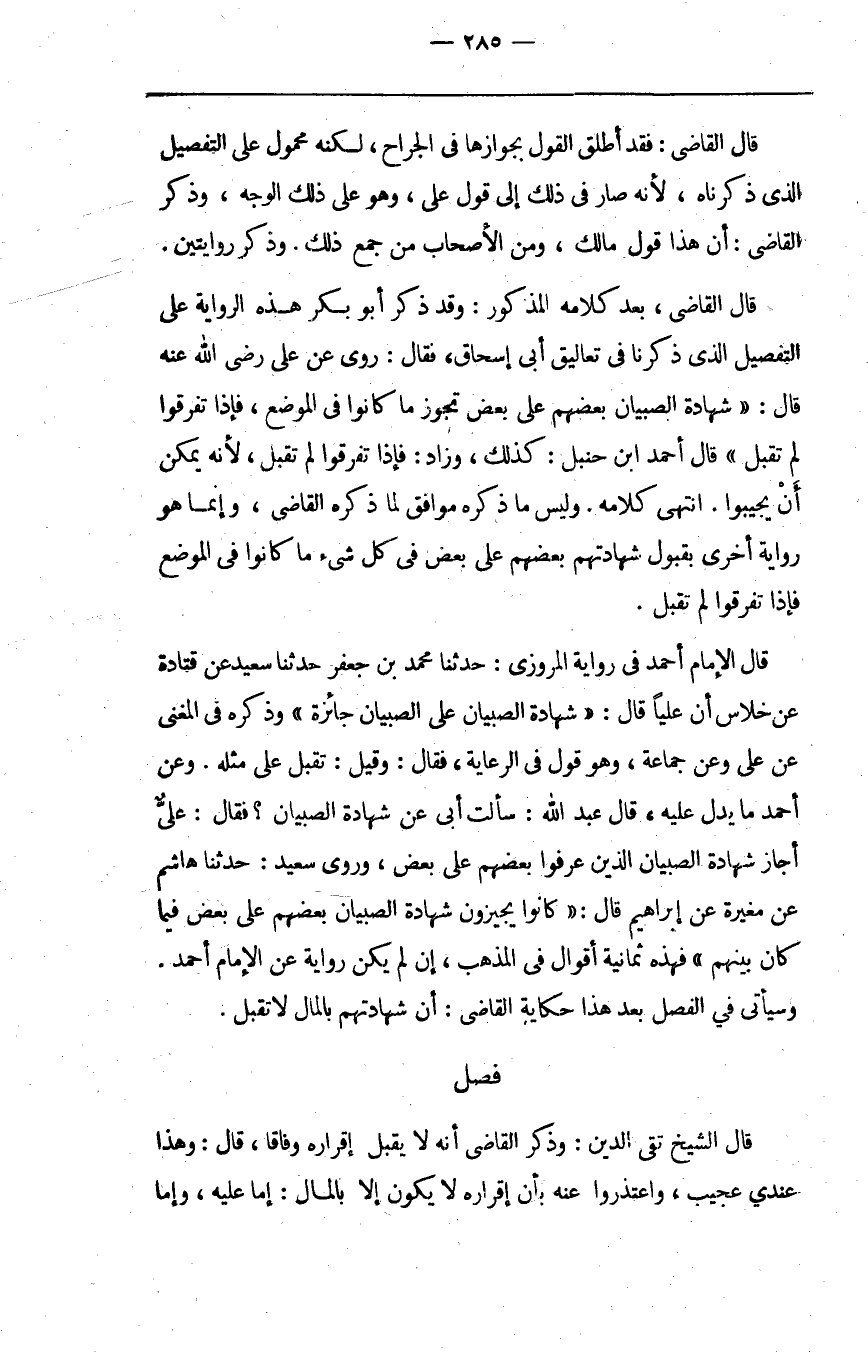 — ٢٨٥ —
قال القاضى : فقد أطلق القول بجوازها فى الجراح ، لـكنه محمول على التفصيل
الذى ذكرناه ، لأنه صار فى ذلك إلى قول على ، وهو على ذلك الوجه ، وذكر
القاضى : أن هذا قول مالك ، ومن الأصحاب من جمع ذلك . وذكر روايتين .
قال القاضى ، بعد كلامه المذكور : وقد ذكر أبو بـكر هـذه الرواية على
التفصيل الذى ذكرنا فى تعاليق أبى إسحاق، فقال : روى عن على رضى الله عنه
قال : « شهادة الصبيان بعضهم على بعض تجوز ما كانوا فى الموضع ، فإذا تفرقوا
لم تقبل » قال أحمد ابن حنبل : كذلك ، وزاد : فإذا تفرقوا لم تقبل ، لأنه يمكن
أَنْ يجيبوا . انتهى كلامه . وليس ما ذكره موافق لما ذكره القاضى ، وإنمـا هو
رواية أخرى بقبول شهادتهم بعضهم على بعض فى كل شىء ما كانوا فى الموضع
فإذا تفرقوا لم تقبل .
قال الإمام أحمد فى رواية المروزى : حدثنا محمد بن جعفر حدثنا سعيدعن قتادة
عن خلاس أن علياً قال : « شهادة الصبيان على الصبيان جائزة » وذكره فى المغنى
عن على وعن جماعة ، وهو قول فى الرعاية ، فقال : وقيل : تقبل على مثله . وعن
أحمد ما يدل عليه ، قال عبد الله : سألت أبى عن شهادة الصبيان ؟ فقال : علىٌّ
أجاز شهادة الصبيان الذين عرفوا بعضهم على بعض ، وروى سعيد : حدثنا هاشم
عن مغيرة عن إبراهيم قال :« كانوا يجيزون شهادة الصبيان بعضهم على بعض فيما
كان بينهم » فهذه ثمانية أقوال فى المذهب ، إن لم يكن رواية عن الإمام أحمد .
وسيأتى في الفصل بعد هذا حكاية القاضى : أن شهادتهم بالمال لاتقبل .
فصل
قال الشيخ تقى الدين : وذكر القاضى أنه لا يقبل إقراره وفاقا ، قال : وهذا
عندي عجيب ، واعتذروا عنه بأن إقراره لا يكون إلا بالمـال : إما عليه ، وإما